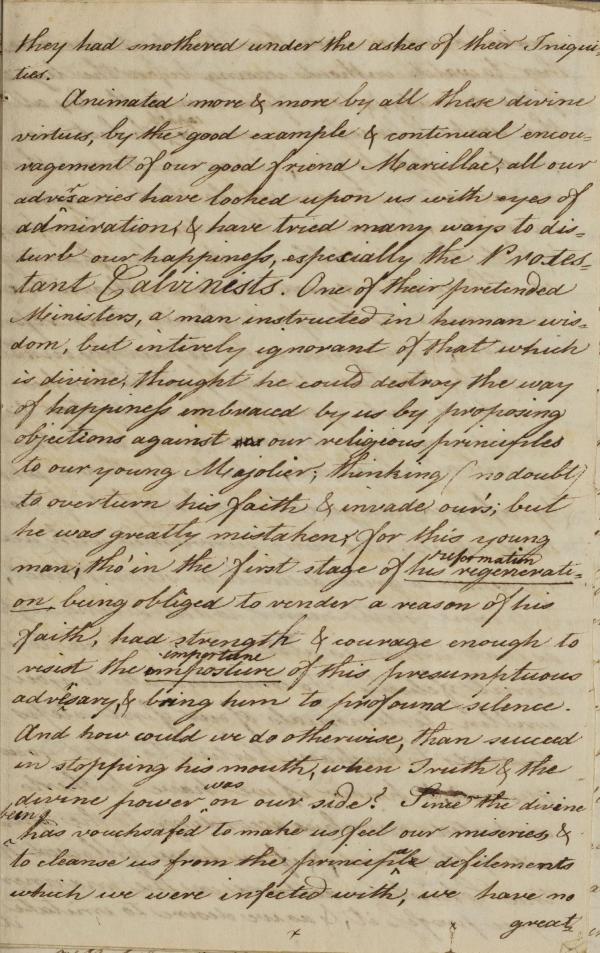 they had smothered under the ashes of their Iniqui-
ties.
Animated more & more by all these divine
virtues, by the good example & continual encou-
ragement of our good friend Marcillac, all our
adversaries have looked upon us with eyes of
admiration, & have tried many ways to dis-
turb our happiness, especially the Protes-
tant Calvinists. One of their pretended
Ministers, a man instructed in human wis-
dom, but intirely ignorant of that which
is divine, thought he could destroy the way
of happiness embraced by us by proposing
objections against our religious principles
to our young Majolier; thinking (no doubt)
to overturn his faith & invade our's; but
he was greatly mistaken, for this young
reformation
man, tho' in the first stage of his regenerati-
on being obliged to render a reason of his
faith, had strength & courage enough to
importune
resist the imposture of this presumptuous
adversary, & bring him to profound silence.
And how could we do otherwise, than succeed
in stopping his mouth, when Truth & the
was
divine power on our side? Since the divine
being
has vouchsafed to make us feel our miseries, &
to cleanse us from the principal defilements
which we were infected with, we have no
great